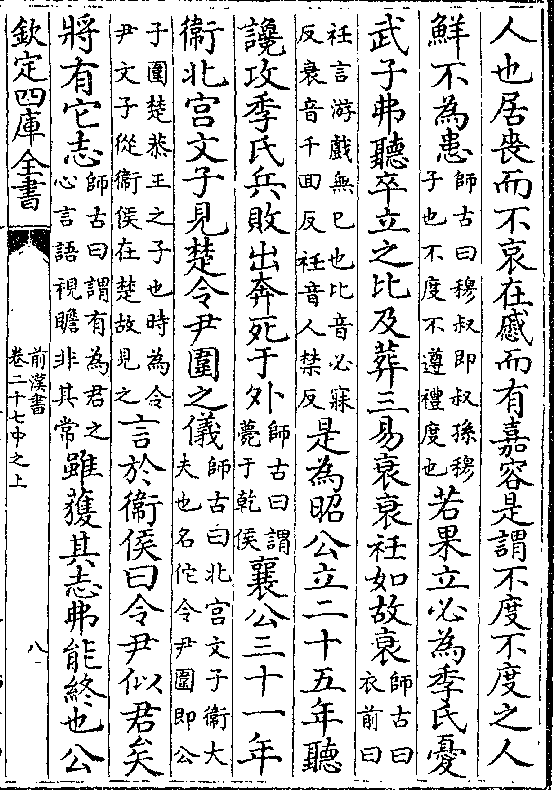 人也居喪而不哀在慼而有嘉容是謂不度不度之人
鮮不為患師古曰穆叔即叔孫穆子也不度不遵禮度也若果立必為季氏憂
武子弗聽卒立之比及葬三易衰衰衽如故衰師古曰衣前曰
衽言游戲無已也比音必寐反衰音千回反衽音人禁反是為昭公立二十五年聽
讒攻季氏兵敗出奔死于外師古曰謂薨于乾侯襄公三十一年
衞北宫文子見楚令尹圍之儀師古曰北宫文子衞大夫也名佗令尹圍即公
子圍楚恭王之子也時為令尹文子從衞侯在楚故見之言於衞侯曰令尹似君矣
將有它志師古曰謂有為君之心言語視瞻非其常雖獲其志弗能終也公
欽定四庫全書
前漢書
卷二十七中之上
八